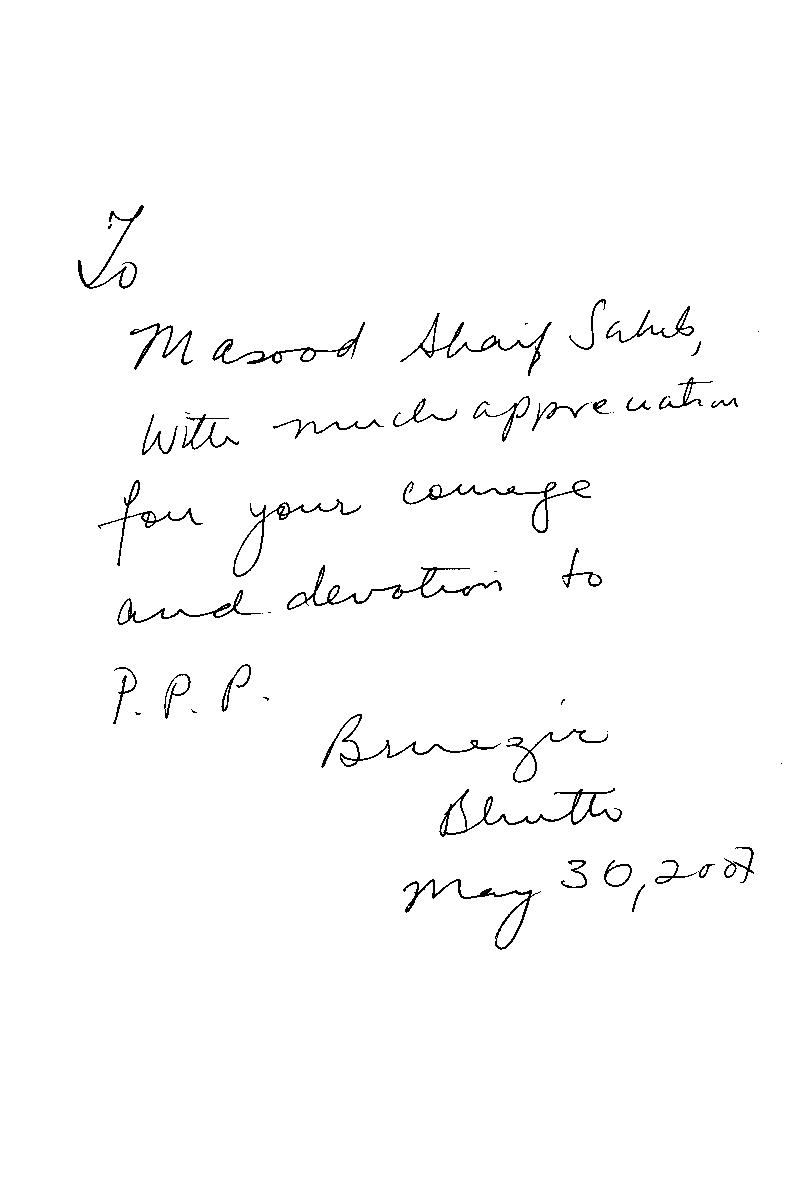 To
Masood Sharif Sahib,
With much appreciation
for your courage
and devotion to
P.P.P.
Benazir
Bhutto
May 30, 2007